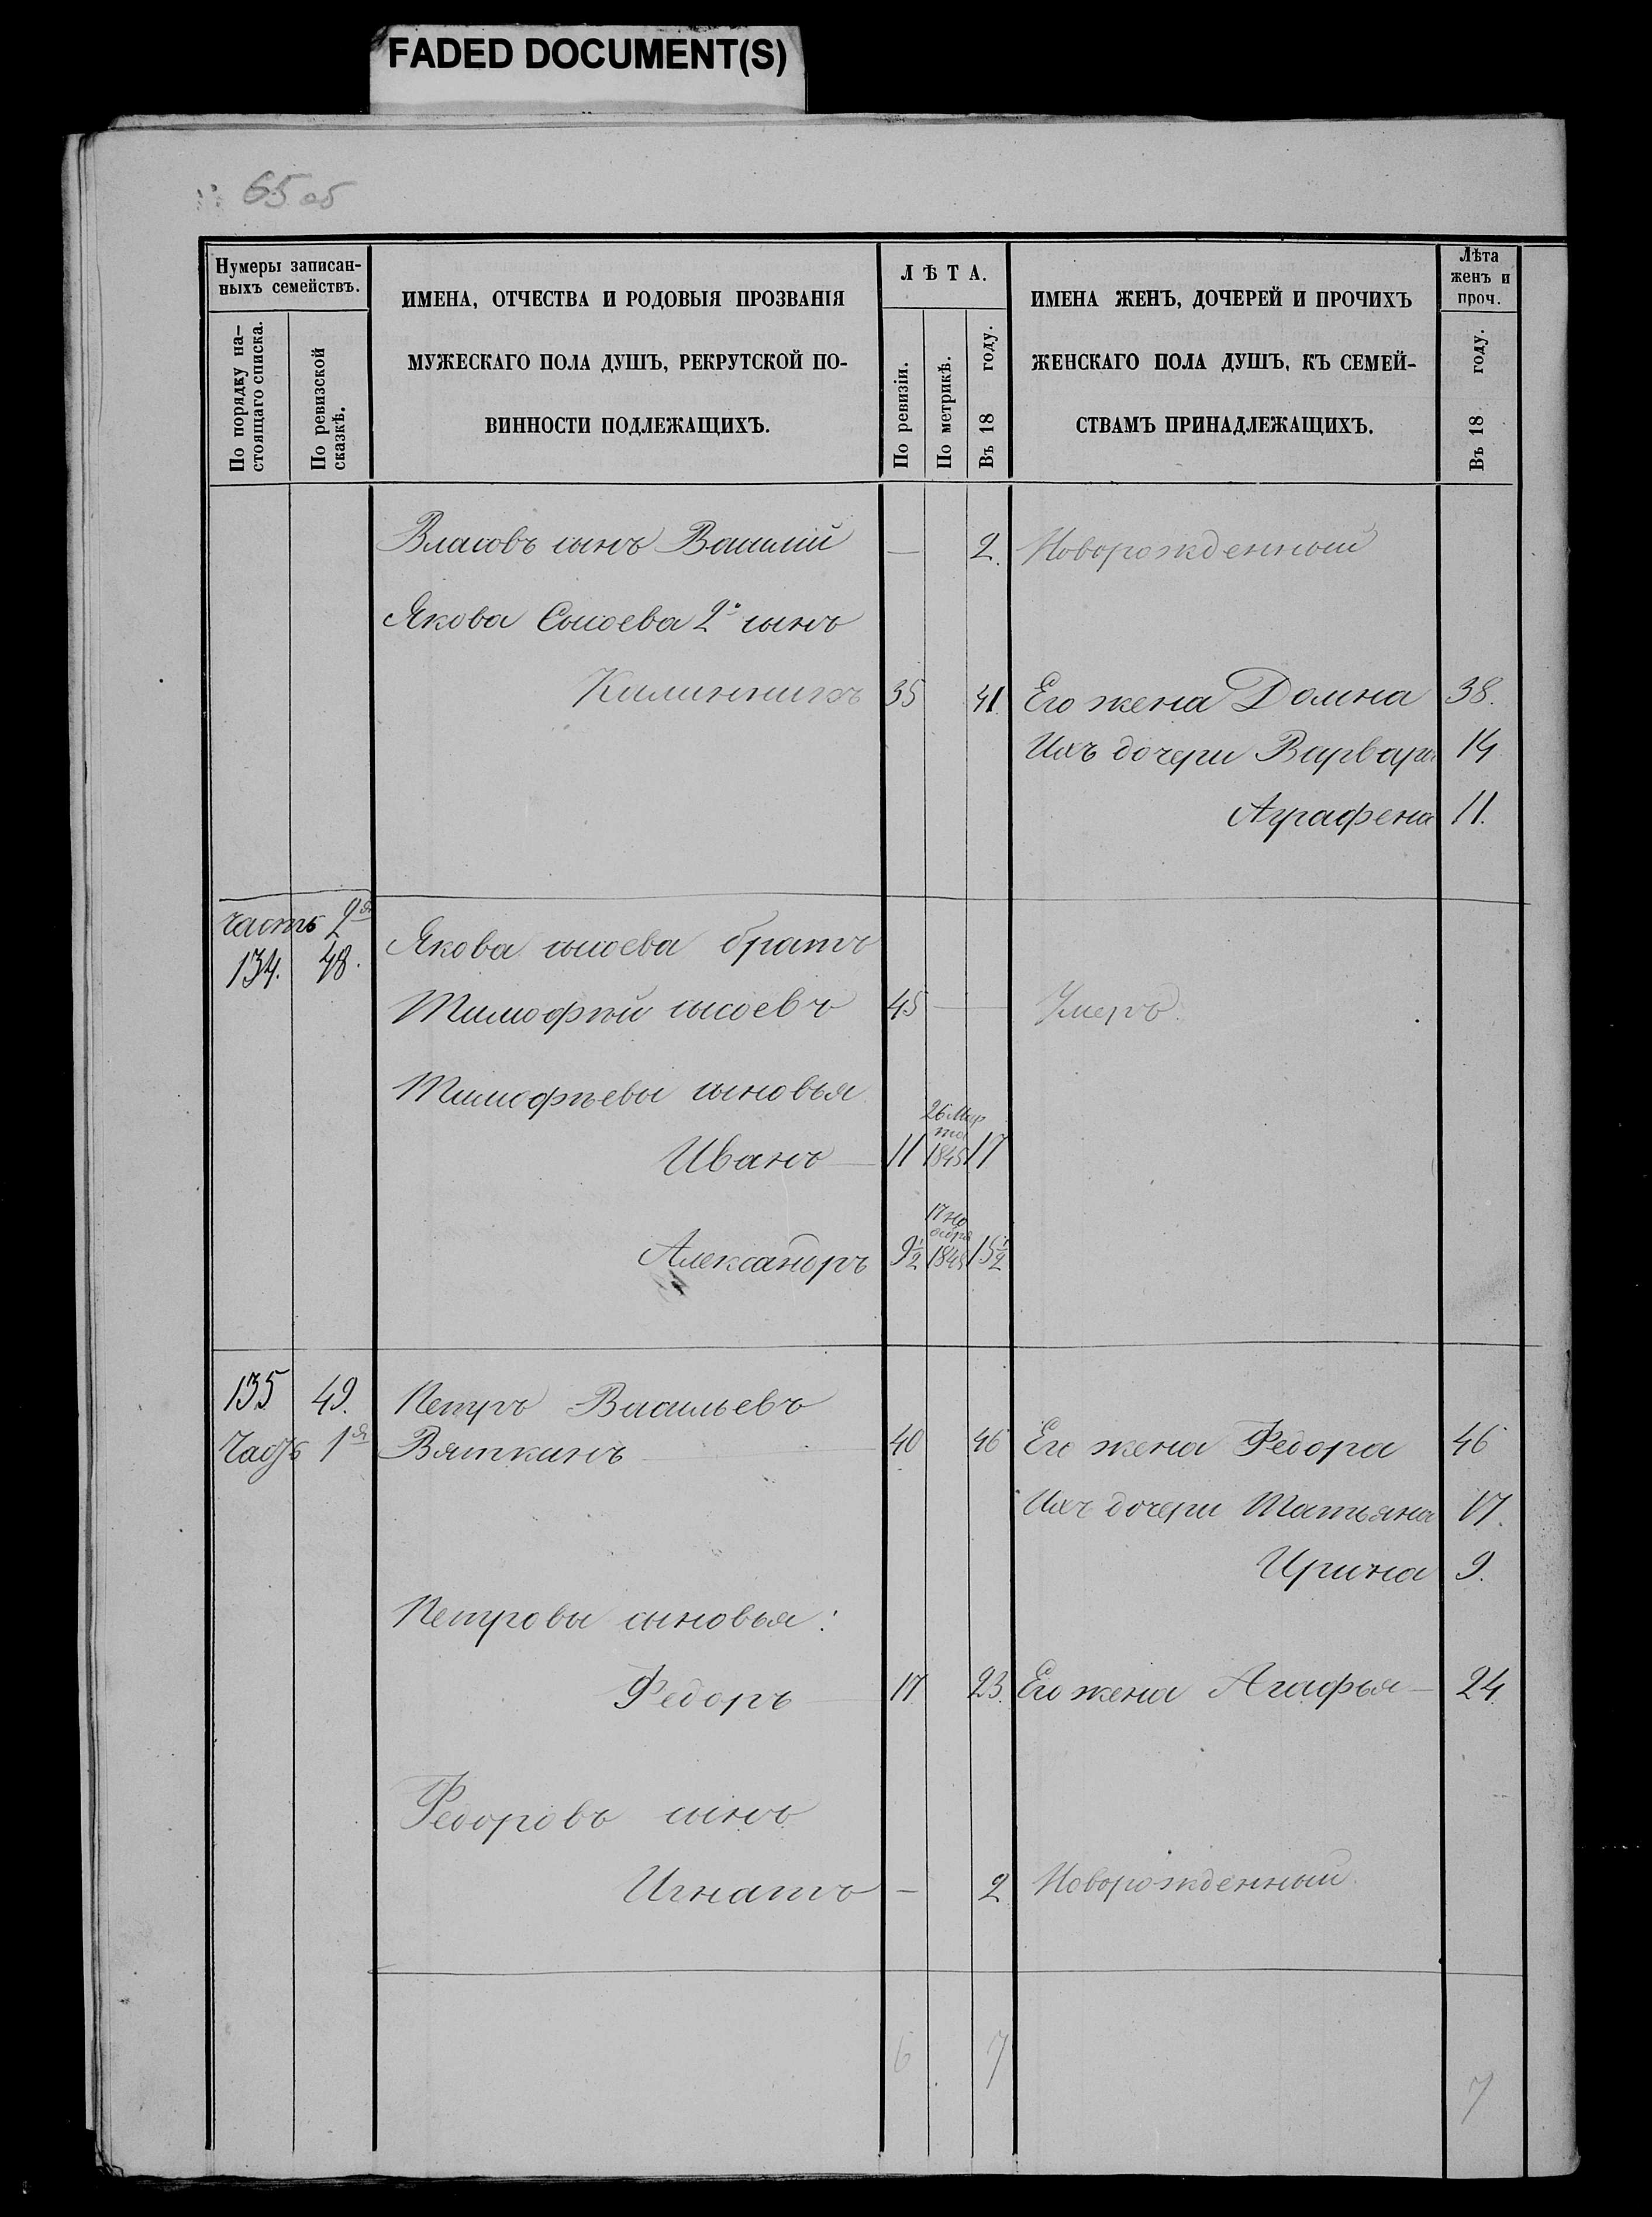 FADED DOCUMENT(S)
65 об
Нумеры записан-
ныхъ семействъ.
По порядку на-
стоящаго списка.
По ревизской
сказкѣ.
ИМЕНА, ОТЧЕСТВА И РОДОВЫЯ ПРОЗВАНІЯ
МУЖЕСКАГО ПОЛА ДУШЪ, РЕКРУТСКОЙ ПО-
ВИННОСТИ ПОДЛЕЖАЩИХЪ.
ЛѢТА.
По ревизіи.
По метрикѣ.
Въ 18 году.
ИМЕНА ЖЕНЪ, ДОЧЕРЕЙ И ПРОЧИХЪ
ЖЕНСКАГО ПОЛА ДУШЪ, КЪ СЕМЕЙ-
СТВАМЪ ПРИНАДЛЕЖАЩИХЪ.
Лѣта
женъ и
проч.
Въ 18 году.
Власовъ сынъ Василій — 2. Новорожденный
Якова Сысоева 2й сынъ
35 41. Его жена Домна 38.
Ихъ дочери Варвара 14
Аграфена 11.
часть 2я
134. 48. Якова сысоева братъ
Тимофѣй сысоевъ 45 — — Умеръ.
Тимофѣевы сыновья
Иванъ — 11 26 Мар
та
1845 17
Александръ 9½ 17 но
ября
15½
135 49. Петръ Васильевъ
Часть 1я Вяткинъ — 40 46 Его жена Федора 46
Ихъ дочери Татьяна 17.
Ирина 9.
Петровы сыновья:
Федоръ — 17 23. Его жена Агафья — 24.
Федоровъ сынъ
Игнатъ — 2 Новорожденный.
6 7
7